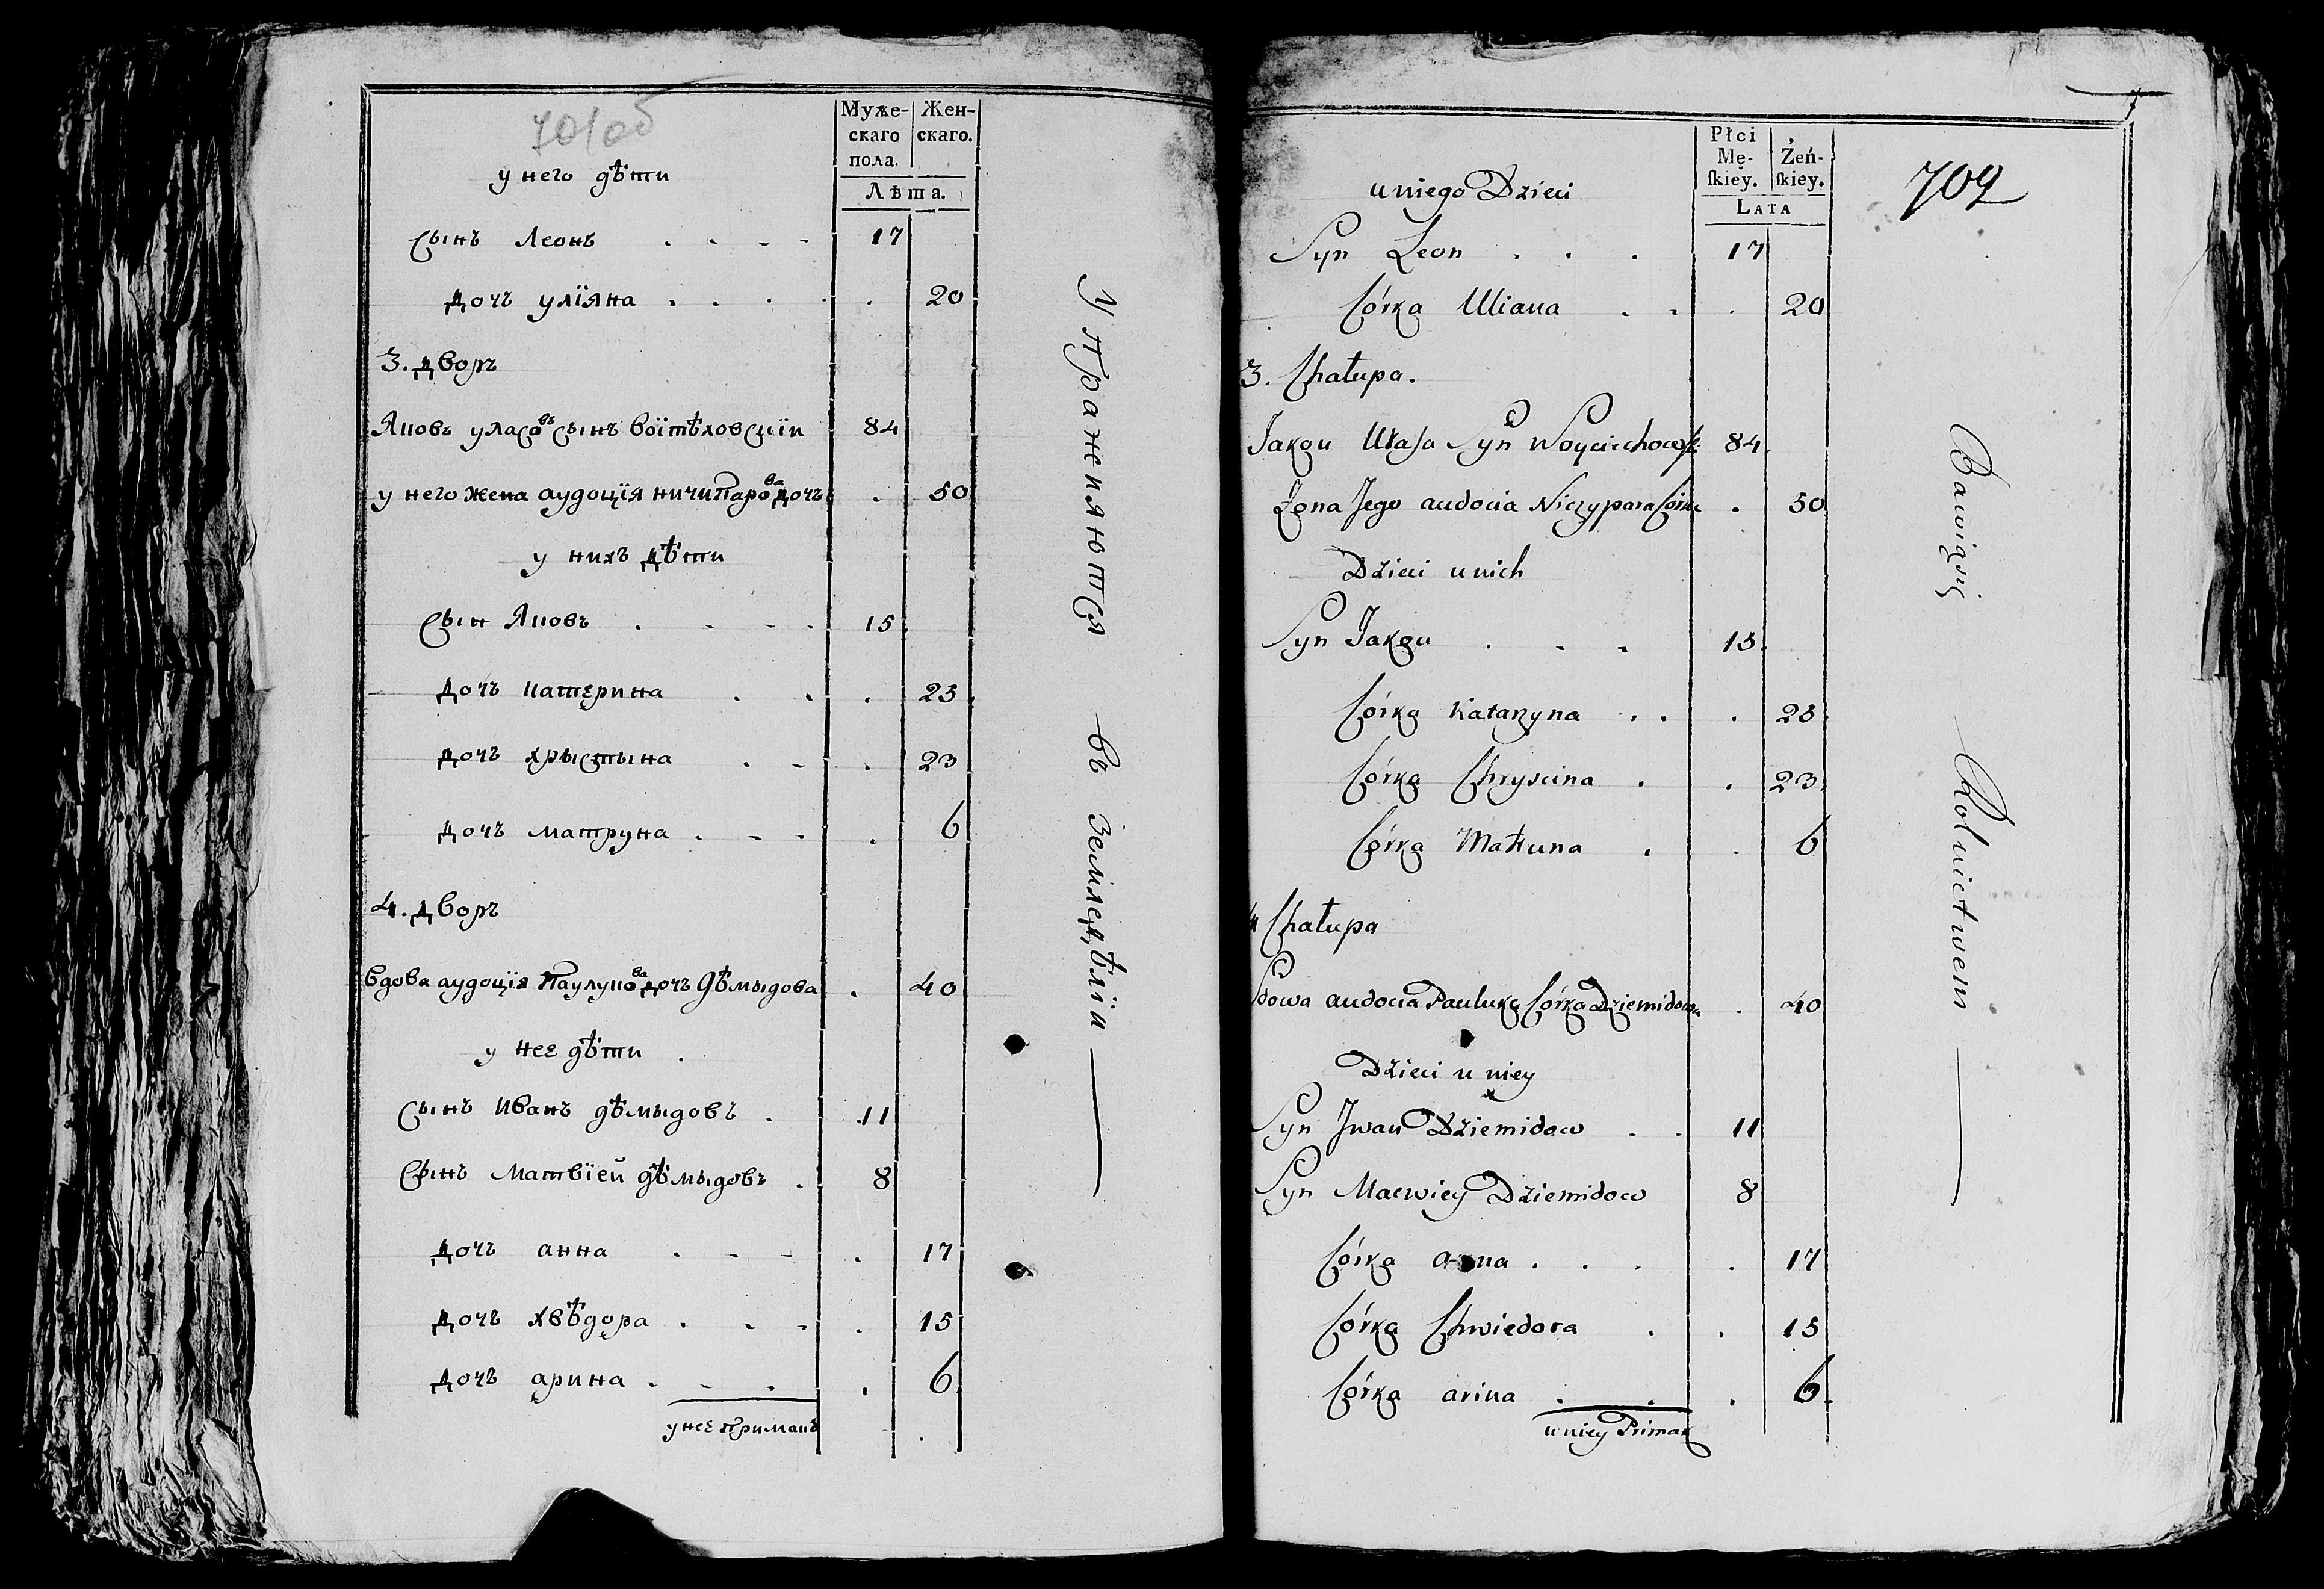 701об
Муже-
скаго
пола.
Жен-
скаго.
Лѣта.
у него дѣти
сынъ Леонъ 17
дочъ улїяна 20
3. дворъ
Яковъ уласовъ сынъ воїтѣховскїи 84
у него жена аудоцїя ничипарова дочъ 50
у нихъ дѣти
сын Яковъ 15
дочъ катерина 25
дочъ хрыстына 23
дочъ матруна 6
4. дворъ
вдова аудоцїя Паулукова дочъ дѣмыдова 40
у нее дѣти
сынъ иванъ дѣмыдовъ 11
сынъ матвїей дѣмыдовъ 8
дочъ анна 17
дочъ хвѣдора 15
дочъ арина 6
у нее примакъ
Упражняются въ земледѣліи
702
Płci
Mę-
ſkiey.
Żeń-
ſkiey.
LATA
u niego Dzieci
Syn Leon 17
Córka Uliana 20
3. Chałupa.
Jakou Ułasa Syn Woyciechowsk: 84
Żona Jego audocia Niczypara Córka 50
Dzieci u nich
Syn Jakou 15
Córka Katarzyna 25
Córka Chryscina 23
Córka Matruna 6
4 Chałupa
Wdowa audocia Pauluka Córka Dziemidowa 40
Dzieci u niey
Syn Jwan Dziemidow 11
Syn Maewiey Dziemidow 8
Córka anna 17
Córka Chwiedora 15
Córka arina 6
u niey Primak
Bawią się Rolnictwem